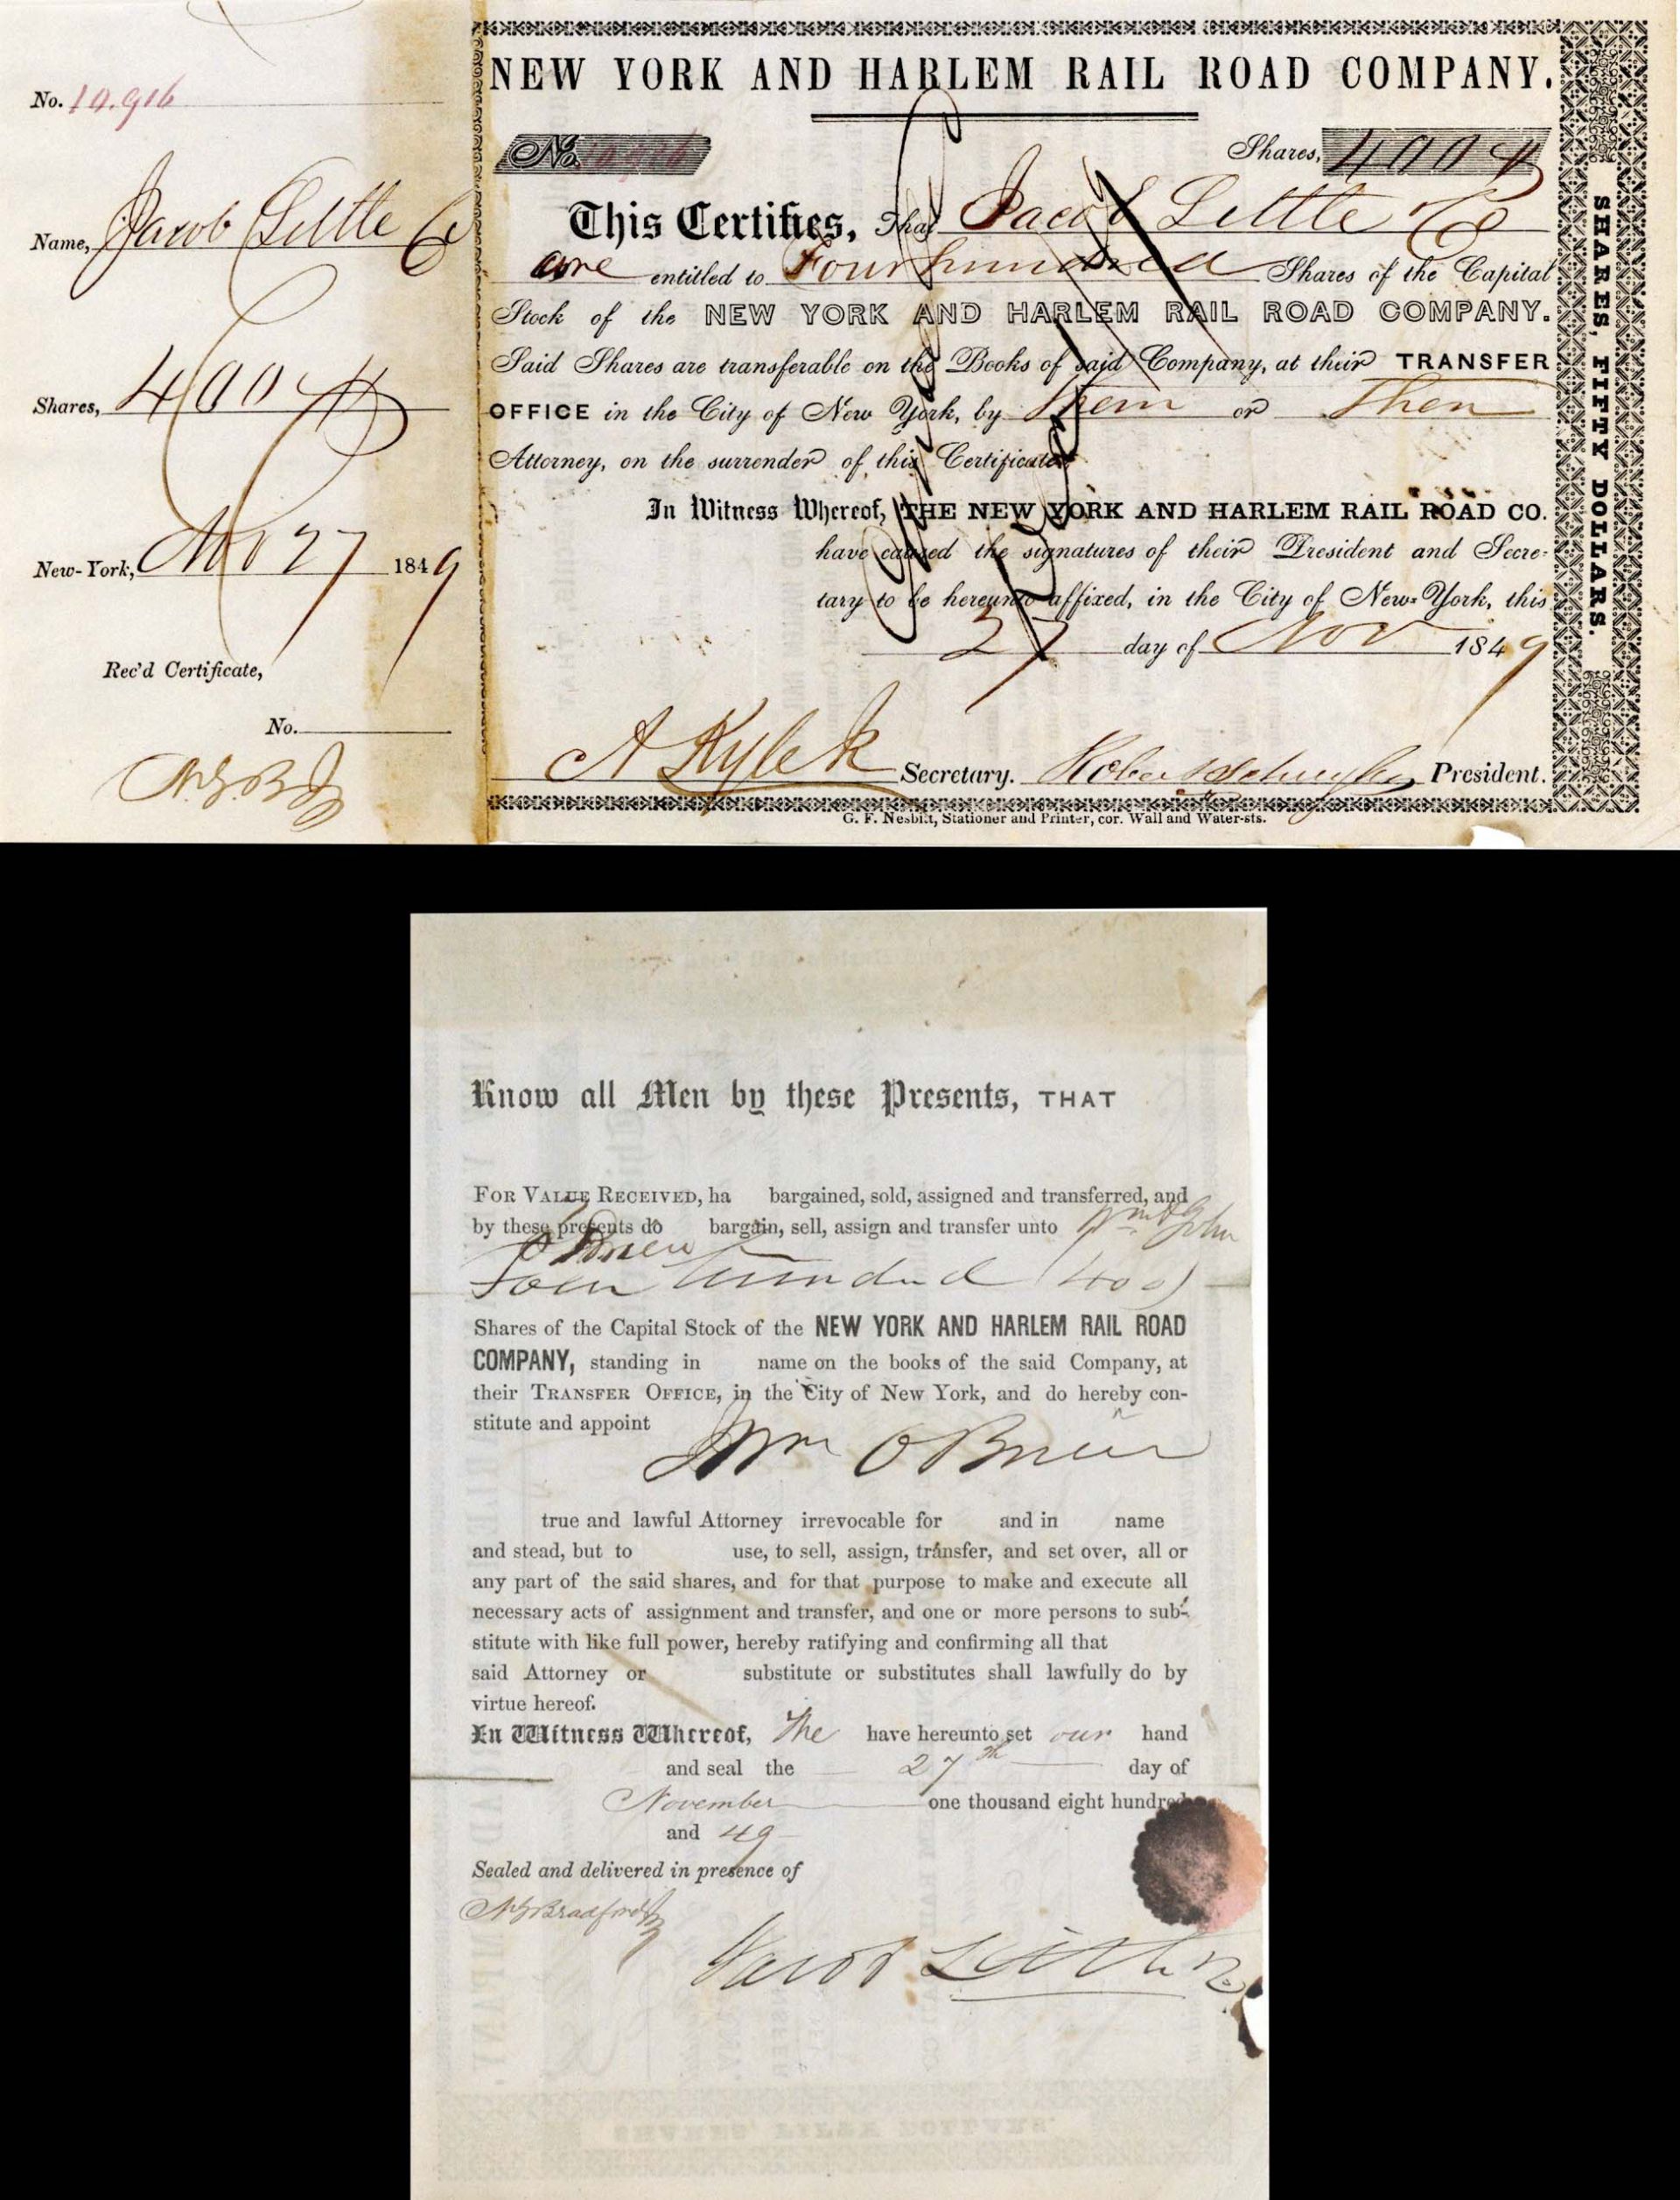 No. 10.916
Name, Jacob Little Co
Shares, 400
New-York, Nov 27 1849
Rec'd Certificate,
No.
NEW YORK AND HARLEM RAIL ROAD COMPANY.
No. 10916
Shares, 400
This Certifies, That Jacob Little Co
are entitled to Four hundred Shares of the Capital
Stock of the NEW YORK AND HARLEM RAIL ROAD COMPANY.
Said Shares are transferable on the Books of said Company, at their TRANSFER
OFFICE in the City of New York, by Them or Their
Attorney, on the surrender of this Certificate.
In Witness Whereof, THE NEW YORK AND HARLEM RAIL ROAD CO.
have caused the signatures of their President and Secre-
tary to be hereunto affixed, in the City of New-York, this
27 day of Nov 1849
A Kyle Jr Secretary. Robert Schuyler President.
G. F. Nesbitt, Stationer and Printer, cor. Wall and Water-sts.
SHARES, FIFTY DOLLARS.
Know all Men by these Presents, THAT
FOR VALUE RECEIVED, ha bargained, sold, assigned and transferred, and
by these presents do bargain, sell, assign and transfer unto Wm & John
O'Brien
Four hundred (400)
Shares of the Capital Stock of the NEW YORK AND HARLEM RAIL ROAD
COMPANY, standing in name on the books of the said Company, at
their TRANSFER OFFICE, in the City of New York, and do hereby con-
stitute and appoint
Wm OBrien
true and lawful Attorney irrevocable for and in name
and stead, but to use, to sell, assign, transfer, and set over, all or
any part of the said shares, and for that purpose to make and execute all
necessary acts of assignment and transfer, and one or more persons to sub-
stitute with like full power, hereby ratifying and confirming all that
said Attorney or substitute or substitutes shall lawfully do by
virtue hereof.
In Witness Whereof, We have hereunto set our hand
and seal the 27th day of
November one thousand eight hundred
and 49
Sealed and delivered in presence of
N G Bradford Jr
Jacob Little Co